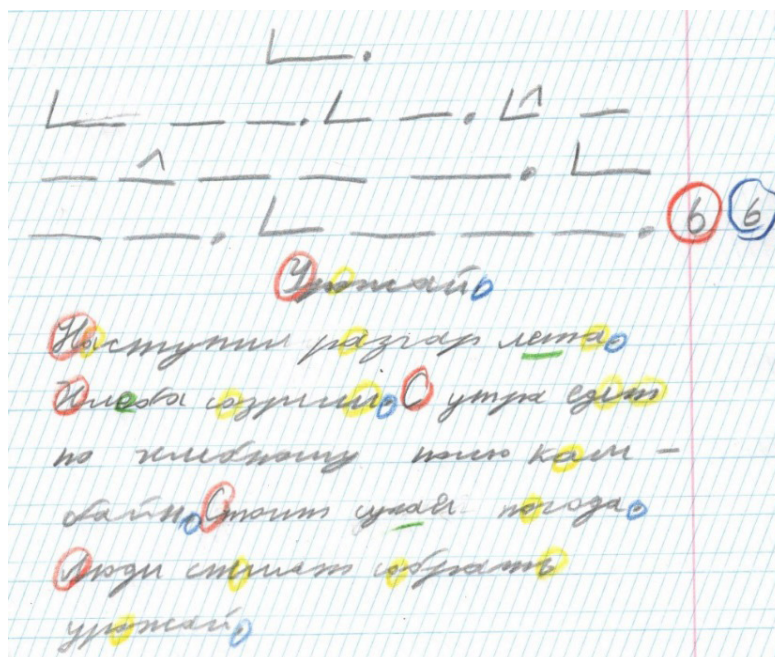 6 6
Урожай.
Наступил разгар лета.
Хлеба созрели. С утра едет
по хлебному полю ком-
байн. Стоит сухая погода.
Люди спешат собрать
урожай.